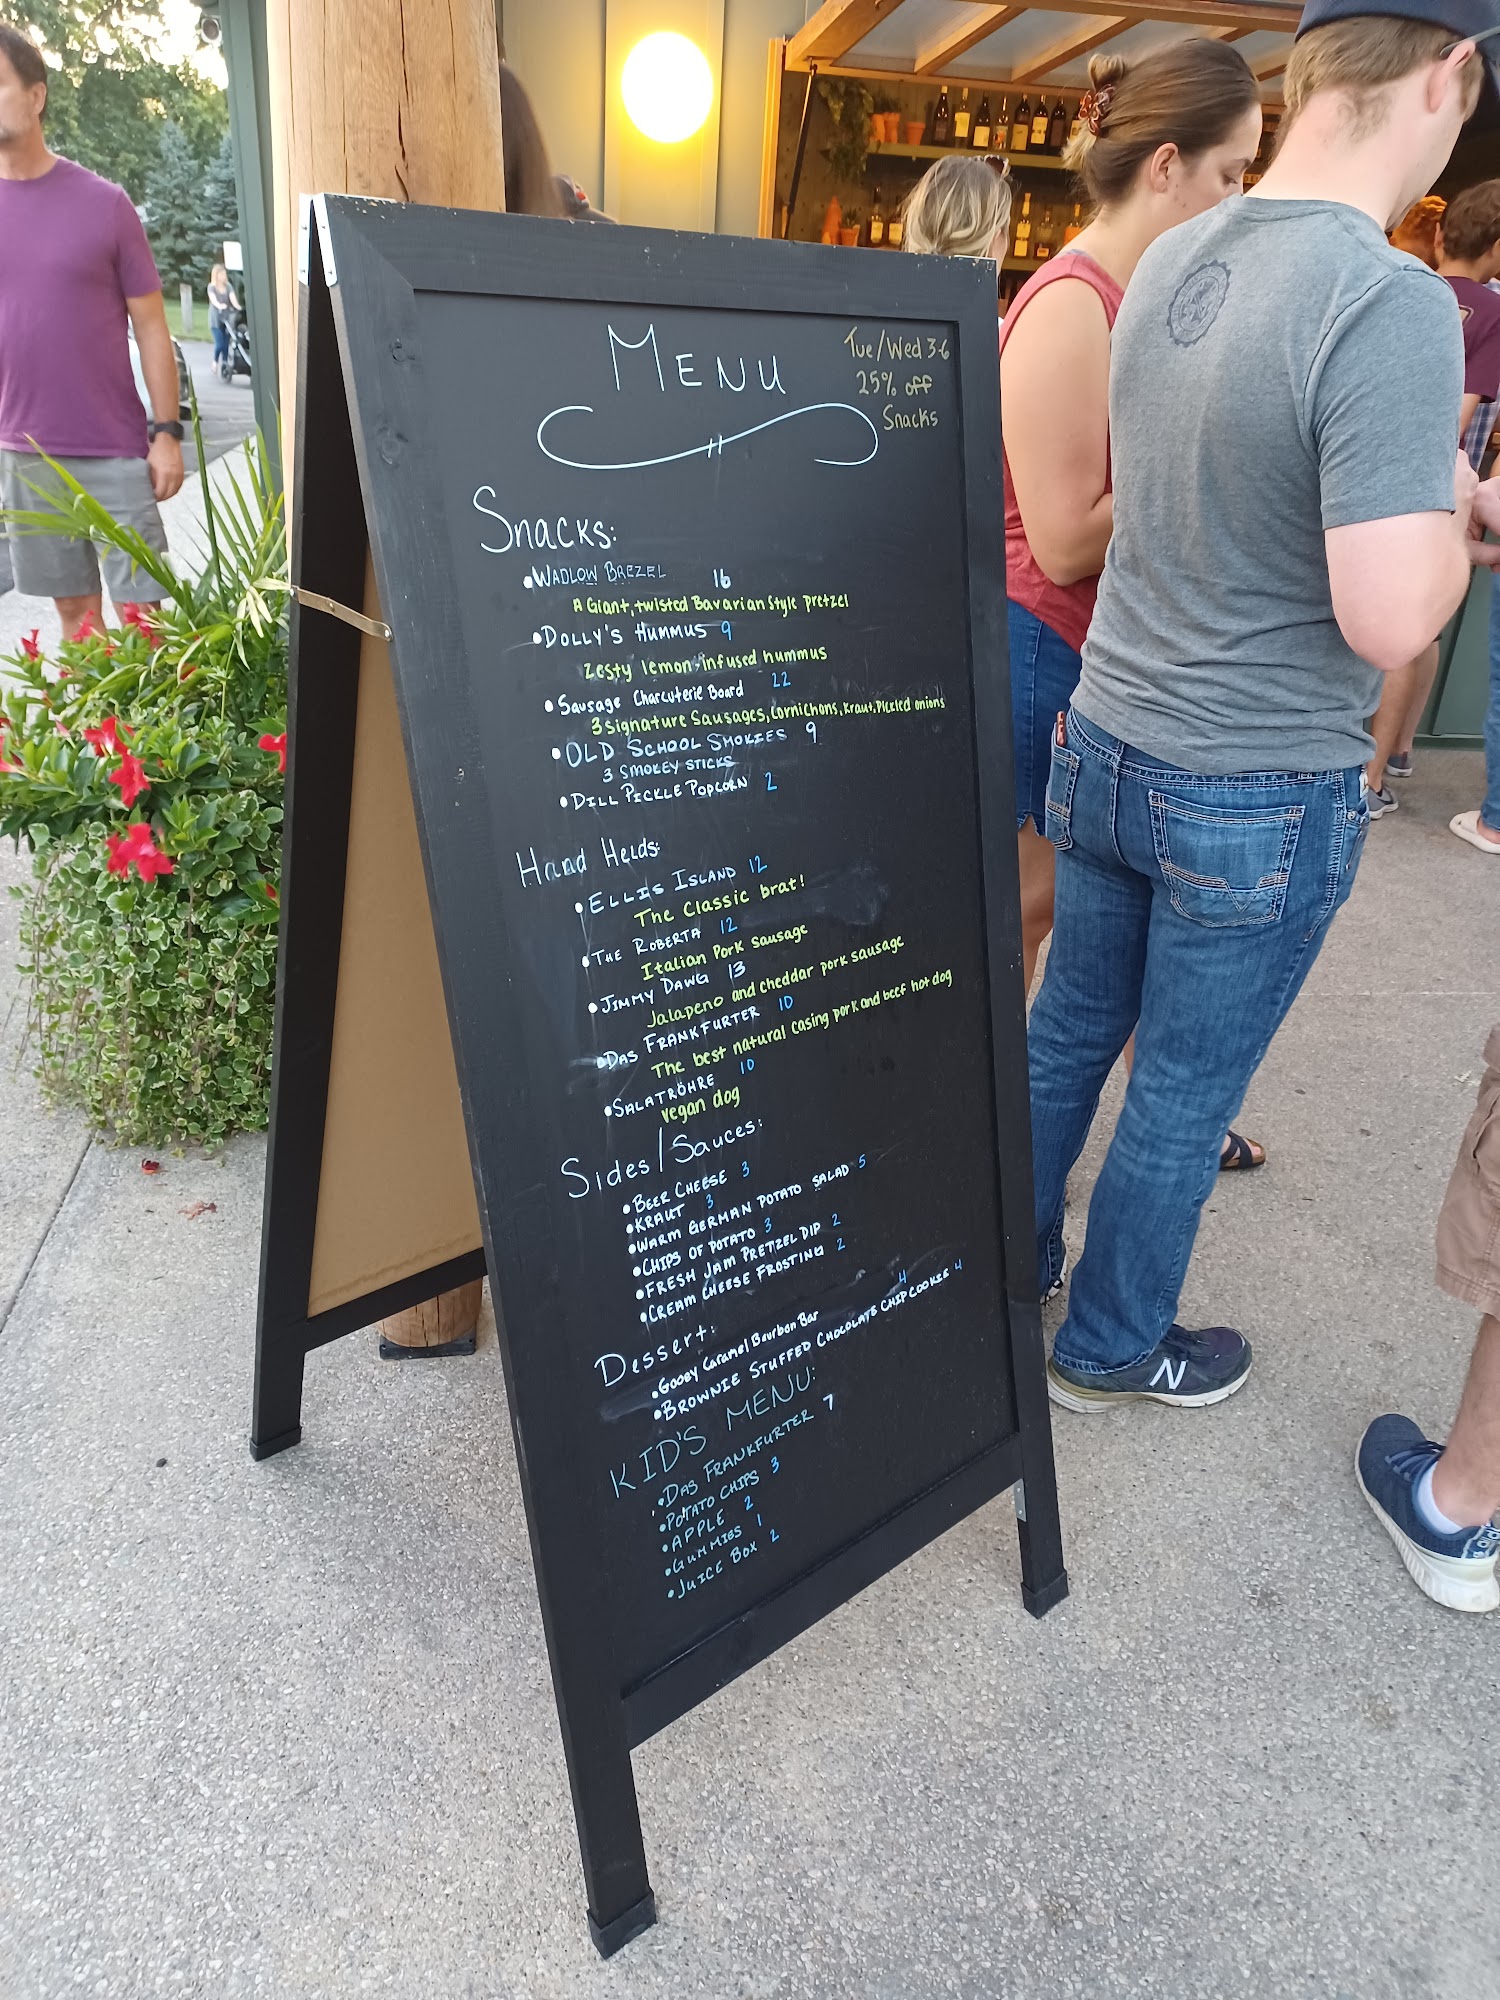 MENU
Tue/Wed 3-6
25% off
Snacks
Snacks:
•WADLOW BREZEL 16
A Giant, twisted Bavarian Style pretzel
•DOLLY'S HUMMUS 9
zesty lemon-infused hummus
•Sausage Charcuterie Board 22
3 signature Sausages, Cornichons, Kraut, Pickled onions
•OLD SCHOOL SMOKIES 9
3 SMOKEY STICKS
•DILL PICKLE POPCORN 2
Hand Helds:
•ELLIS ISLAND 12
The Classic brat!
•THE ROBERTA 12
Italian Pork sausage
•JIMMY DAWG 13
Jalapeno and cheddar pork sausage
•DAS FRANKFURTER 10
The best natural casing pork and beef hot dog
•SALATRÖHRE 10
vegan dog
Sides/Sauces:
•BEER CHEESE 3
•KRAUT 3
•WARM GERMAN POTATO SALAD 5
•CHIPS OF POTATO 3
•FRESH JAM PRETZEL DIP 2
•CREAM CHEESE FROSTING 2
Dessert:
•Gooey Caramel Bourbon Bar 4
•BROWNIE STUFFED CHOCOLATE CHIP COOKIE 4
KID'S MENU:
•DAS FRANKFURTER 7
•POTATO CHIPS 3
•APPLE 2
•GUMMIES 1
•JUICE BOX 2
N